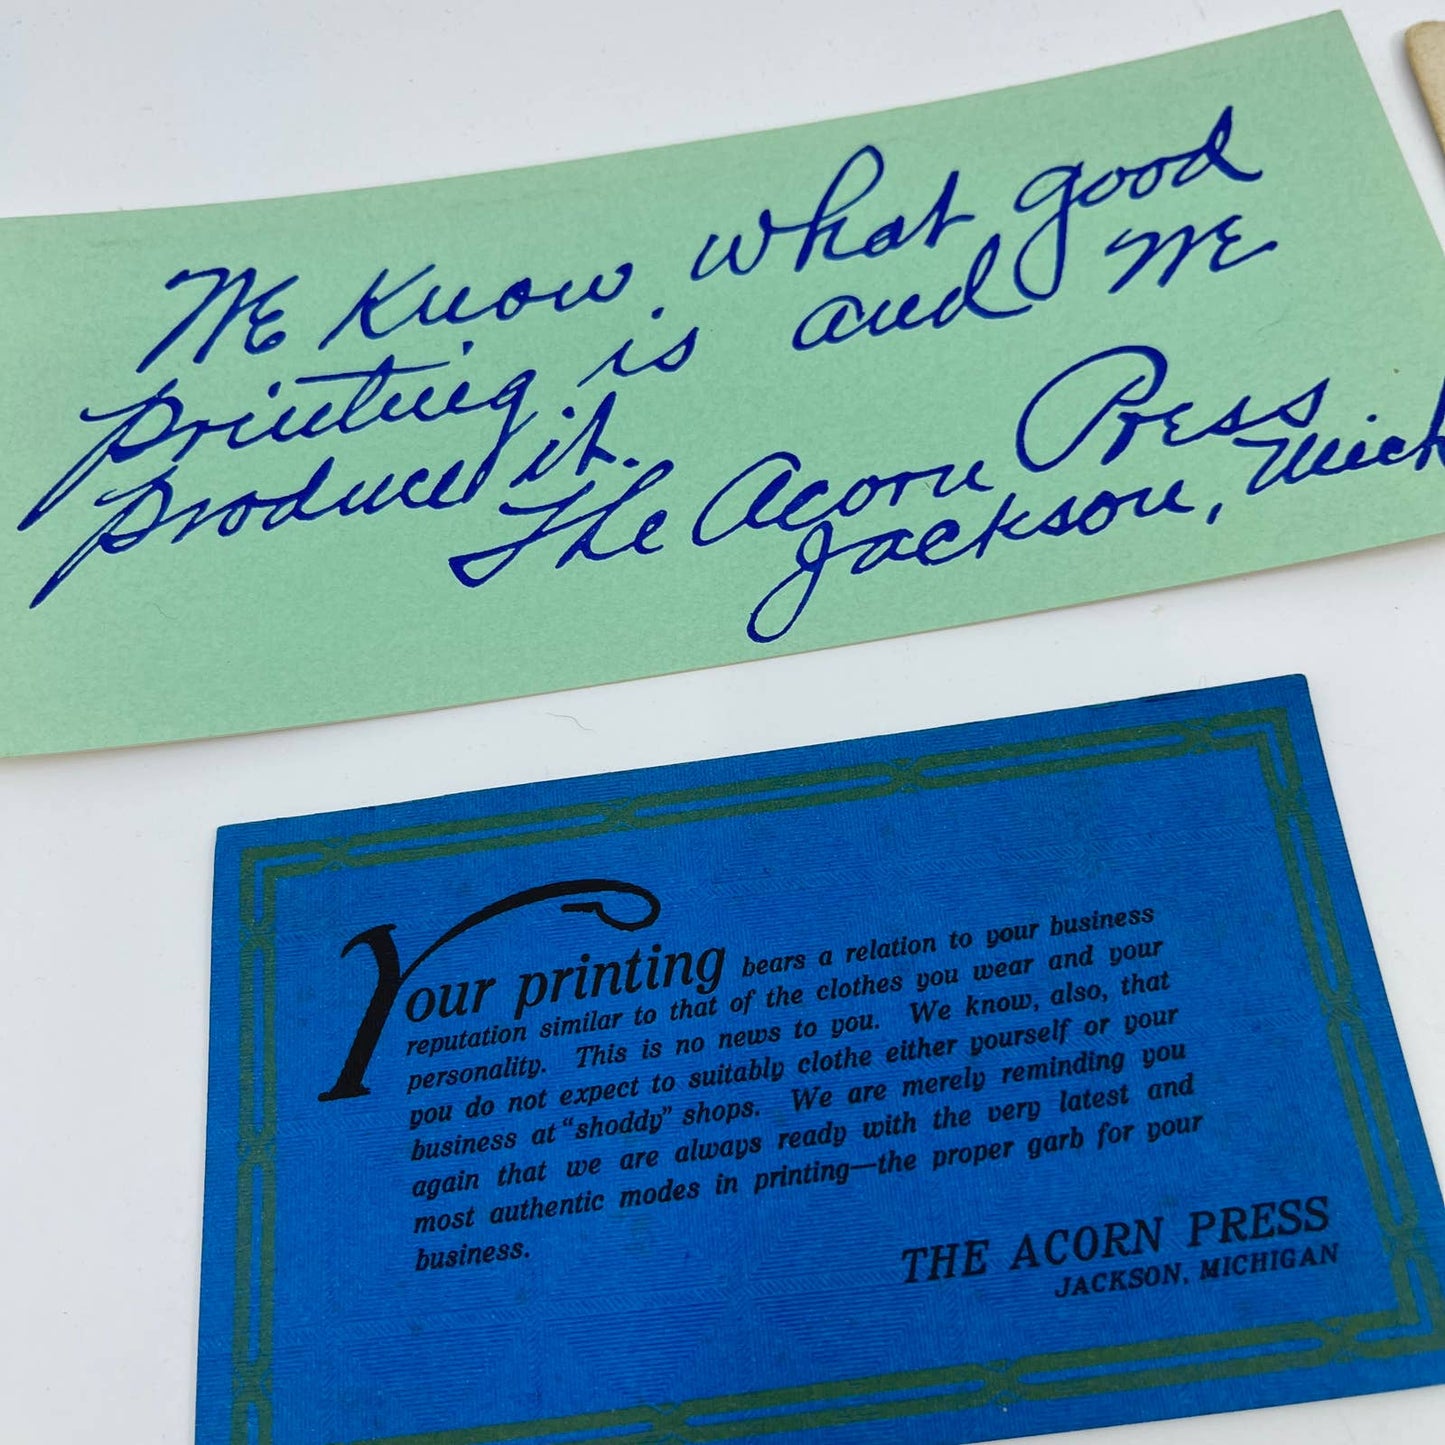 We know what good
printing is and we
produce it.
The Acorn Press
Jackson, Mich
Your printing bears a relation to your business
reputation similar to that of the clothes you wear and your
personality. This is no news to you. We know, also, that
you do not expect to suitably clothe either yourself or your
business at "shoddy" shops. We are merely reminding you
again that we are always ready with the very latest and
most authentic modes in printing—the proper garb for your
business.
THE ACORN PRESS
JACKSON, MICHIGAN